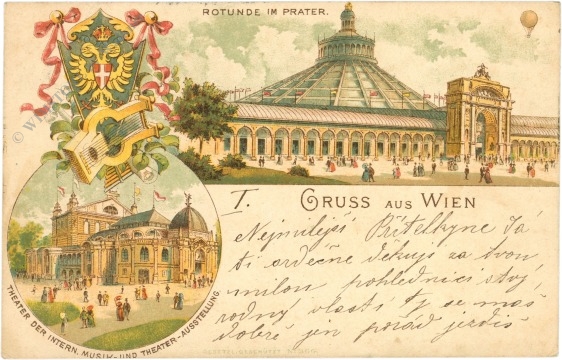 ROTUNDE IM PRATER.
GRUSS AUS WIEN
I.
Nejmilejší Přítelkyne Já
ti srdečne děkuji za tvou
milou pohlednici svoj
rodný vlasti Ty se máš
dobře jen pořád jezdíš
THEATER DER INTERN. MUSIK-UND THEATER-AUSSTELLUNG.